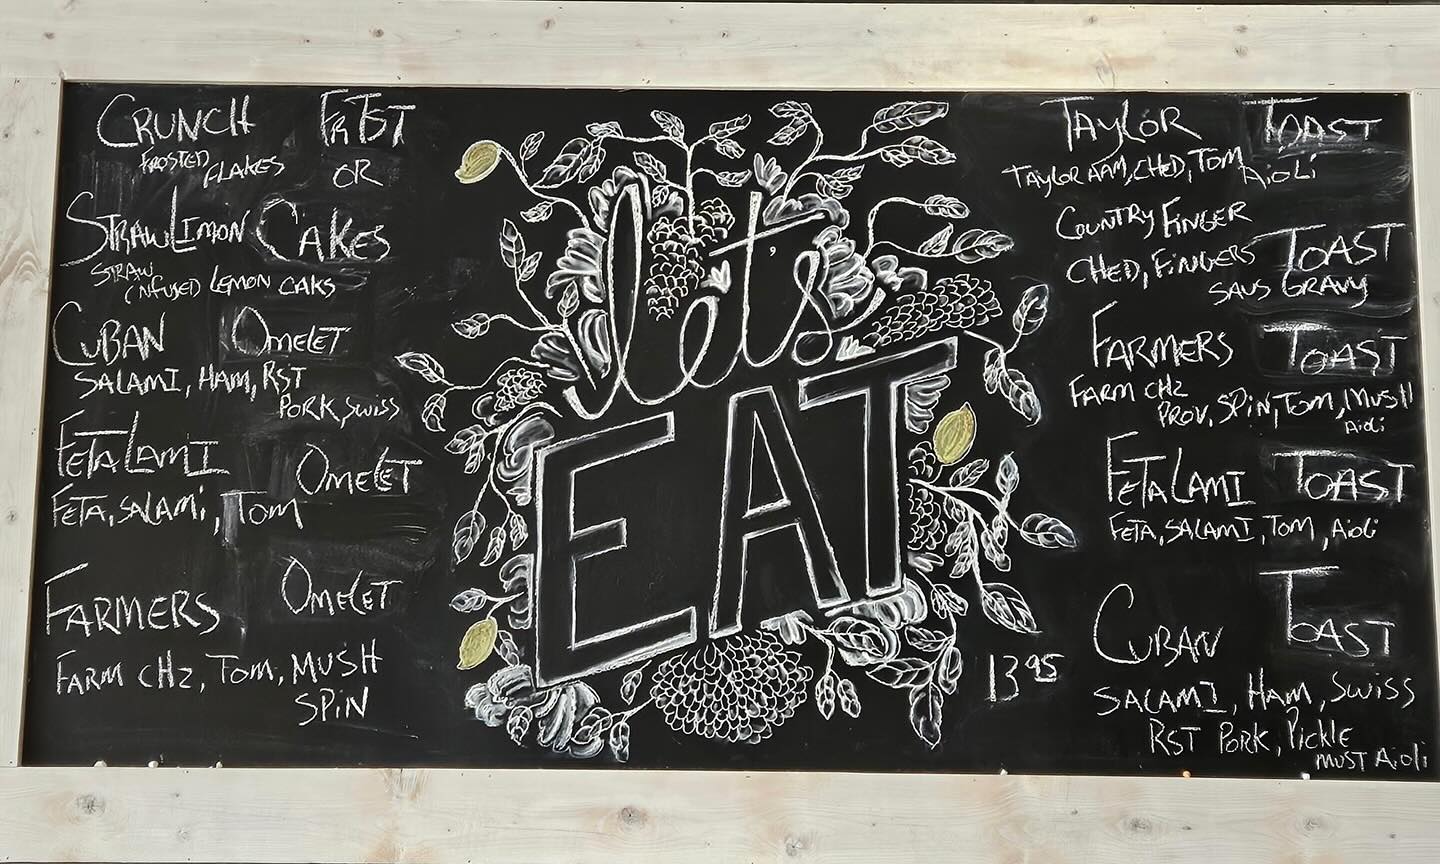 CRUNCH FR TST
FROSTED FLAKES OR
STRAWLIMON CAKES
STRAW INFUSED LEMON CAKS
CUBAN OMELET
SALAMI, HAM, RST
PORK, SWISS
FETALAMI OMELET
FETA, SALAMI, TOM
FARMERS OMELET
FARM CHZ, TOM, MUSH
SPIN
let's
EAT
TAYLOR TOAST
TAYLOR HAM, CHED, TOM AIOLI
COUNTRY FINGER
CHED, FINGERS TOAST
SAUS GRAVY
FARMERS TOAST
FARM CHZ
PROV, SPIN, TOM, MUSH
AIOLI
FETALAMI TOAST
FETA, SALAMI, TOM, AIOLI
CUBAN TOAST
13 95
SALAMI, HAM, SWISS
RST PORK, PICKLE
MUST AIOLI